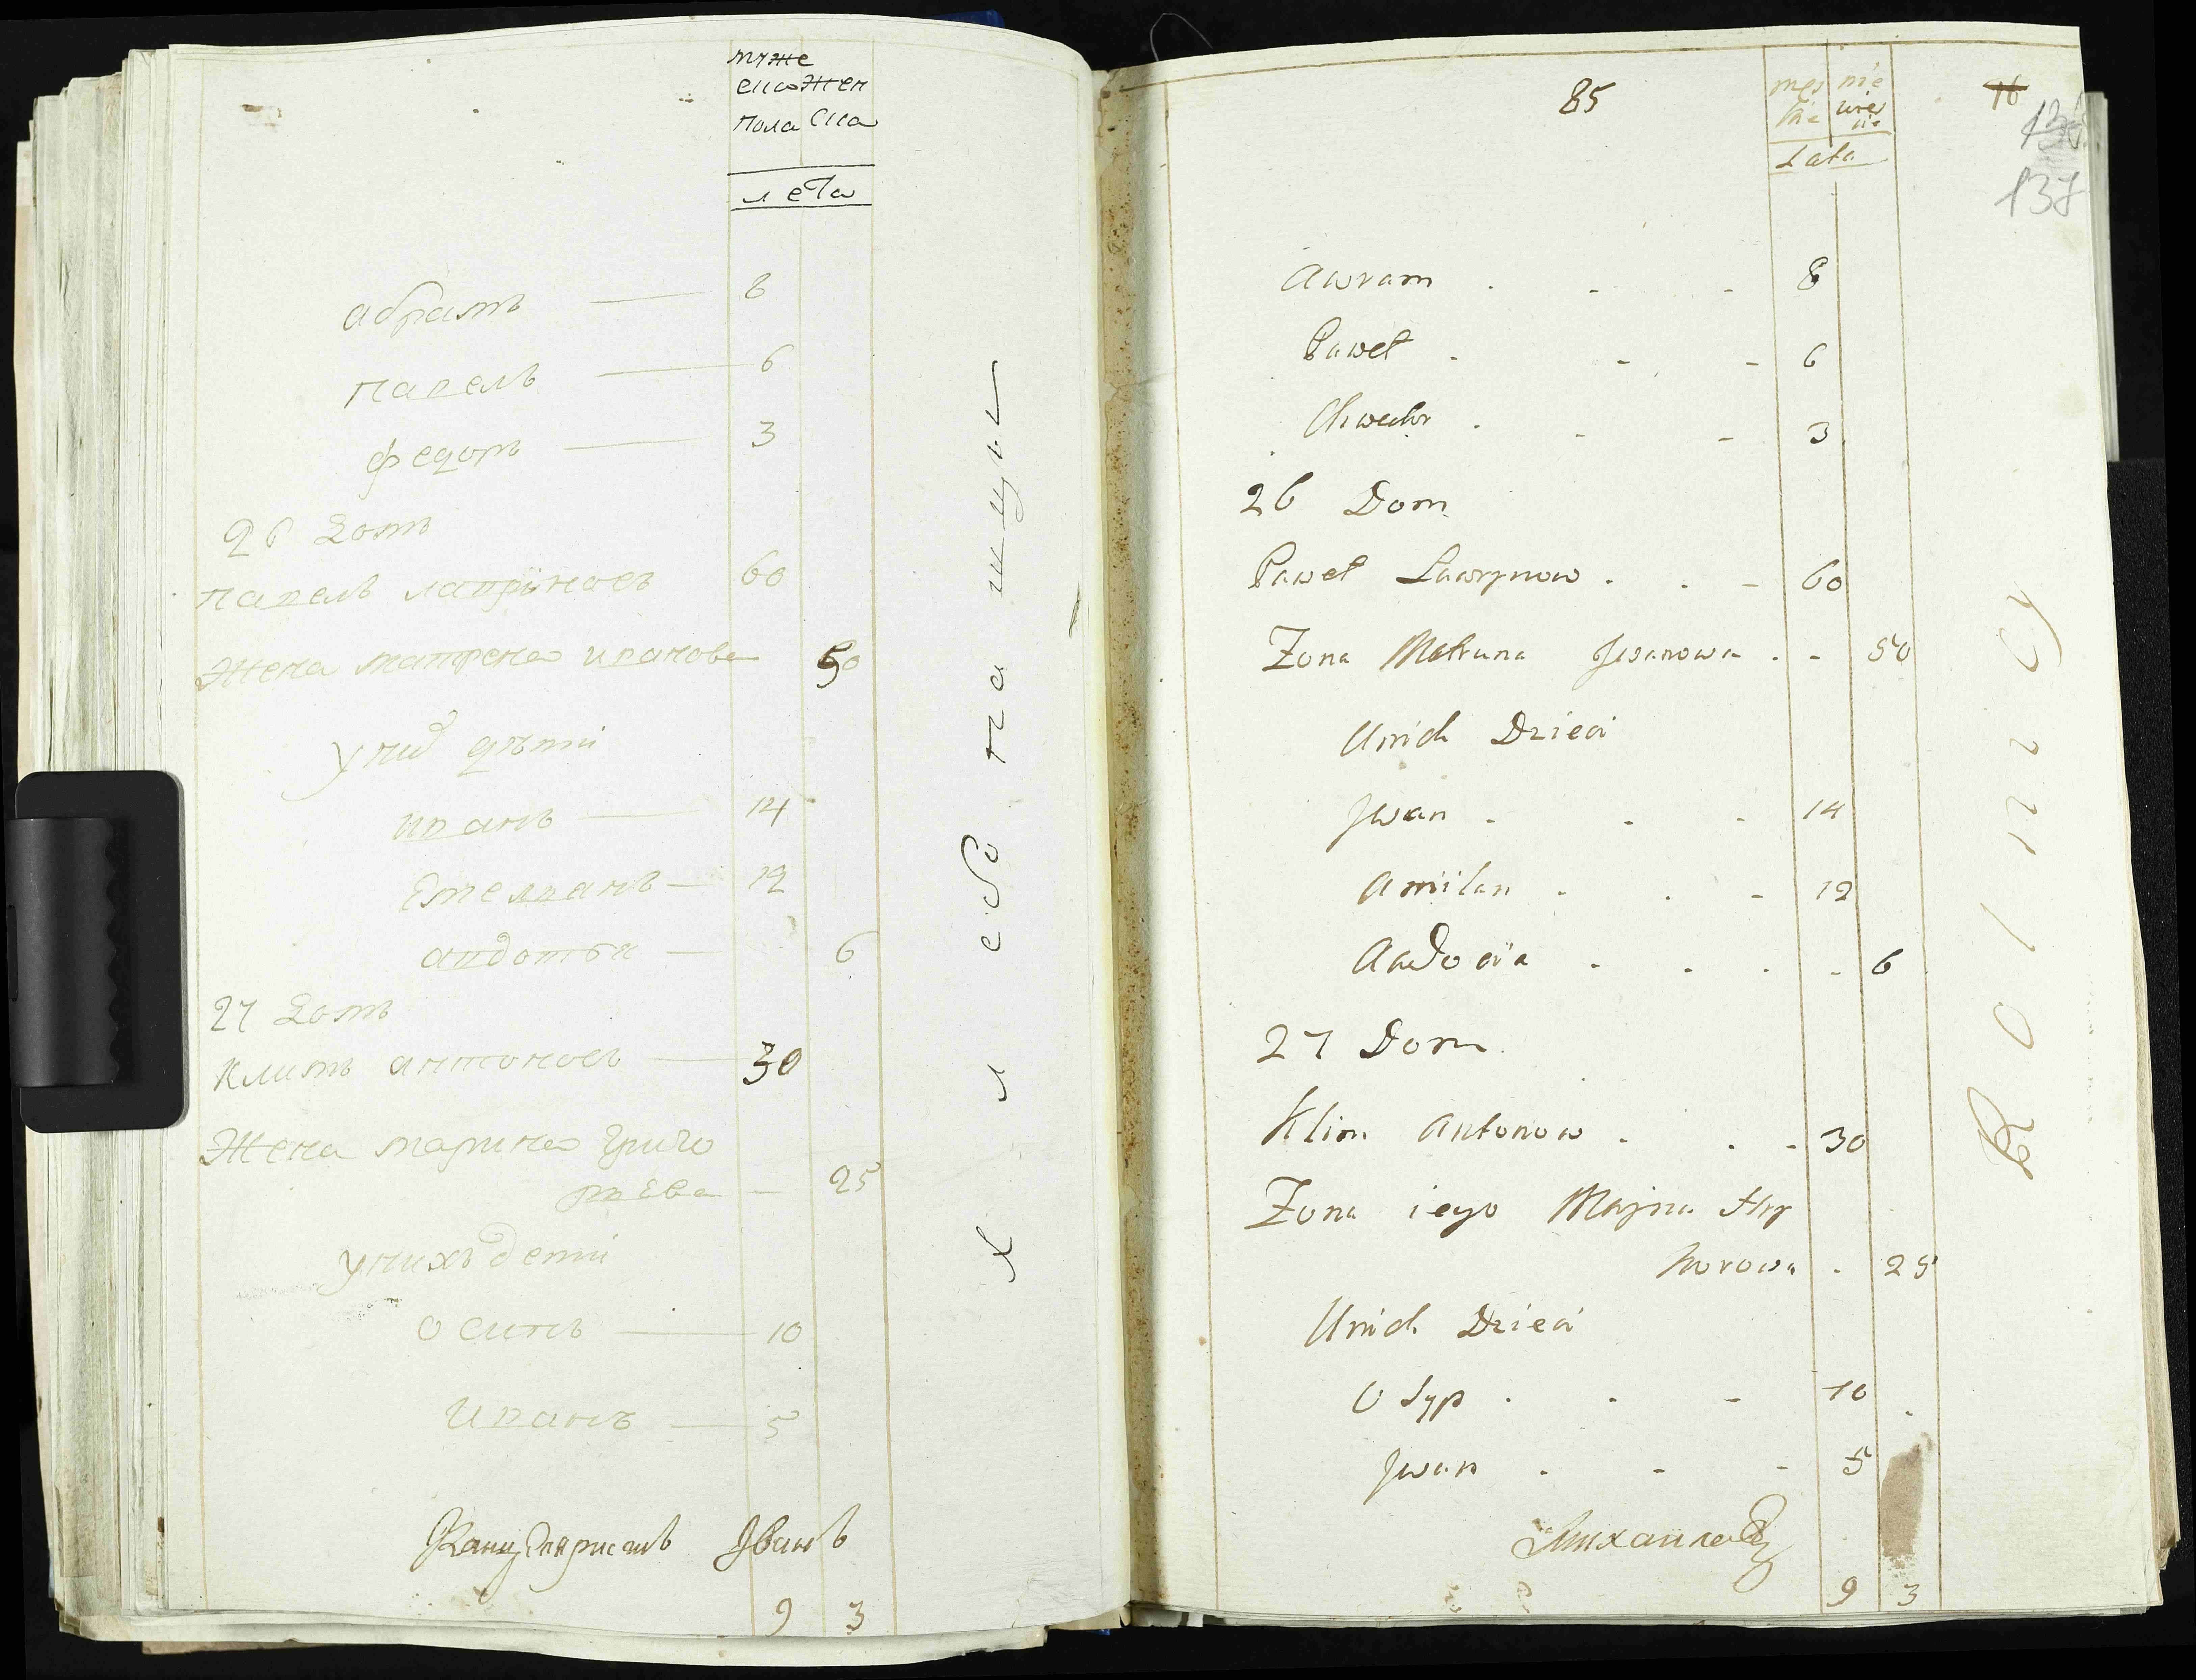 муже
ско жен
пола ска
лета
абрамъ — 8
павелъ — 6
федоръ — 3
26 домъ
павелъ лавриновъ 60
жена матрена иванова 50
у них дѣти
иванъ — 14
Емельянъ — 12
авдотья — 6
27 домъ
климъ антоновъ — 30
Жена марина григо
рьева — 25
у нихъ дети
осипъ — 10
иванъ — 5
Канцеляристъ Іванъ
9 3
хлебопашцы
85
męs nie
kie wieś
cie
Lata
16
137
Awram . - - 8
Paweł . - - 6
Chwedor . - - 3
26 Dom
Paweł Lawrynow . . - 60
Zona Matruna Jwanowa . - 50
Unich Dzieci
Jwan . . . 14
Amilan . . - 12
Audocia . . . - 6
27 Dom
Klim Antonow . . - 30
Zona iego Maryna Hry
horowa . 25
Unich Dzieci
Osyp . . - 10
Jwan . - - 5
Михайловъ
9 3
Rolnicy